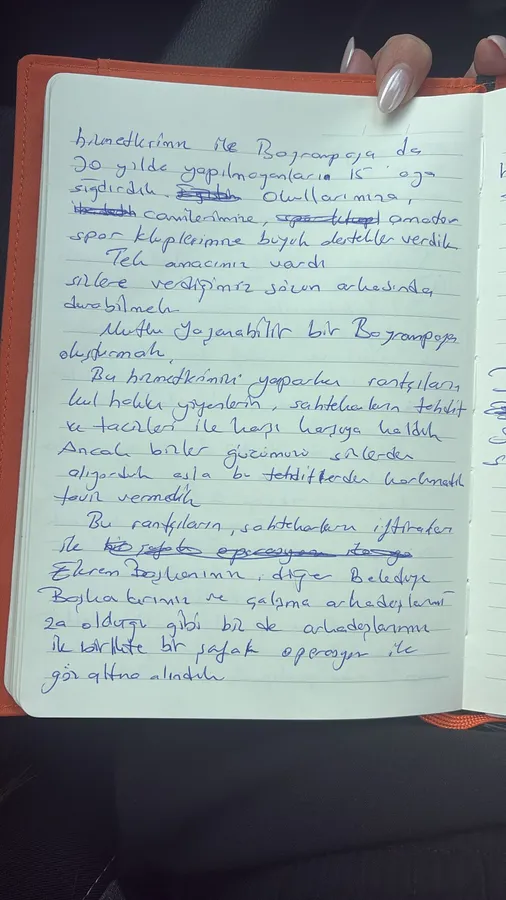 hizmetlerimiz ile Bayrampaşa da
30 yılda yapılmayanları 15 aya
sığdırdık. Okullarımıza,
camilerimize, amatör
spor kluplerimize büyük destekler verdik
Tek amacımız vardı
sizlere verdiğimiz sözün arkasında
durabilmek
Mutlu yaşanabilir bir Bayrampaşa
oluşturmak.
Bu hizmetlerimizi yaparken rantçıların
kul hakkı yiyenlerin, sahtekarların tehdit
ve tacizleri ile karşı karşıya kaldık
Ancak bizler gücümüzü sizlerden
alıyorduk asla bu tehditlerden korkmadık
taviz vermedik
Bu rantçıların, sahtekarların iftiraları
ile
Ekrem Başkanımın, diğer Belediye
Başkanlarımız ve çalışma arkadaşlarımı
za olduğu gibi biz de arkadaşlarımız
ile birlikte bir şafak operasyon ile
göz altına alındık